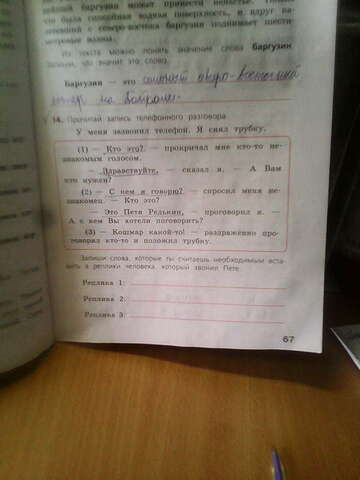 баргузин может принести ненастье.
что была спокойная водная поверхность, и вдруг на-
с северо-востока баргузин поднимает шести-
метровые волны.
Из текста можно понять значение слова баргузин.
Запиши, что значит это слово.
Баргузин — это сильный северо-восточный
ветер на Байкале.
14. Прочитай запись телефонного разговора.
У меня зазвонил телефон. Я снял трубку.
(1) — Кто это? — прокричал мне кто-то не-
знакомым голосом.
— Здравствуйте, — сказал я. — А Вам
кто нужен?
(2) — С кем я говорю? — спросил меня не-
знакомец. — Кто это?
— Это Петя Редькин, — проговорил я. —
А с кем Вы хотели поговорить?
(3) — Кошмар какой-то! — раздражённо про-
говорил кто-то и положил трубку.
Запиши слова, которые ты считаешь необходимым вста-
вить в реплики человека, который звонил Пете.
Реплика 1:
Реплика 2:
Реплика 3:
67